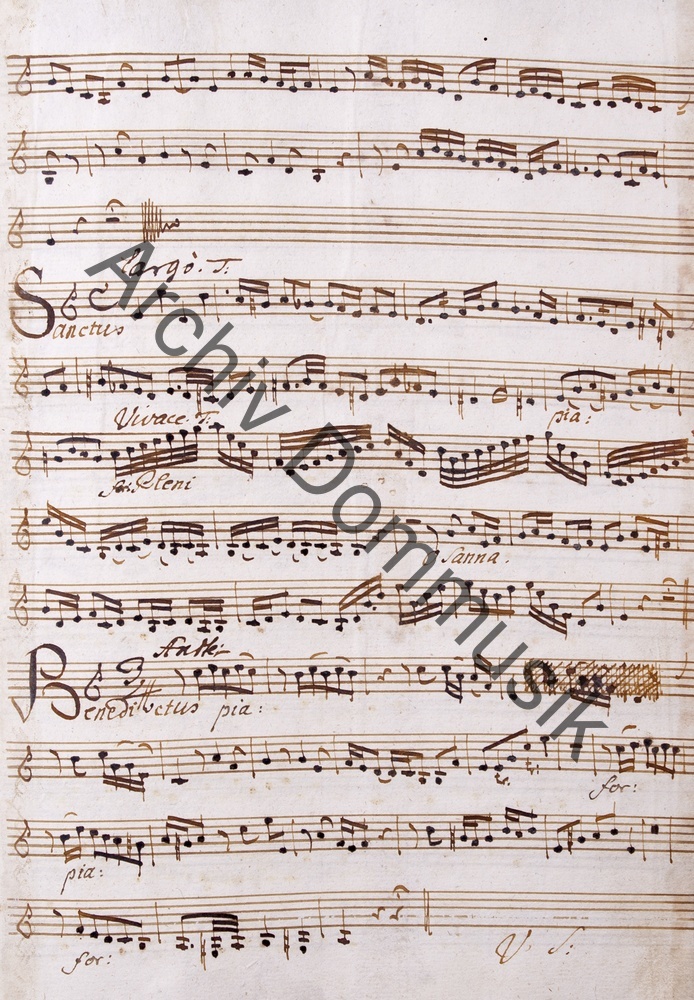 Largo. T:
Sanctus
Vivace T.
pia:
for: Pleni
Osanna.
Andte:
Benedictus pia:
for:
pia:
for:
V. S:
Archiv Dommusik